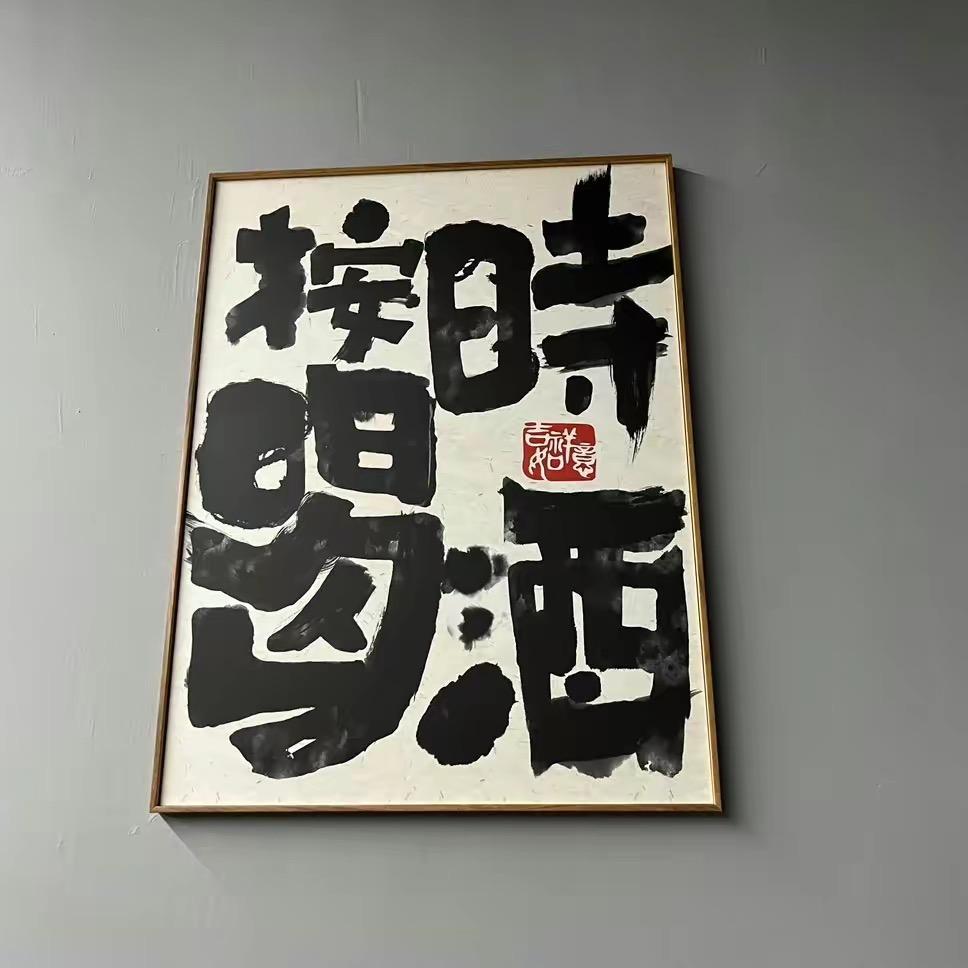 按時
喝酒
吉祥如意